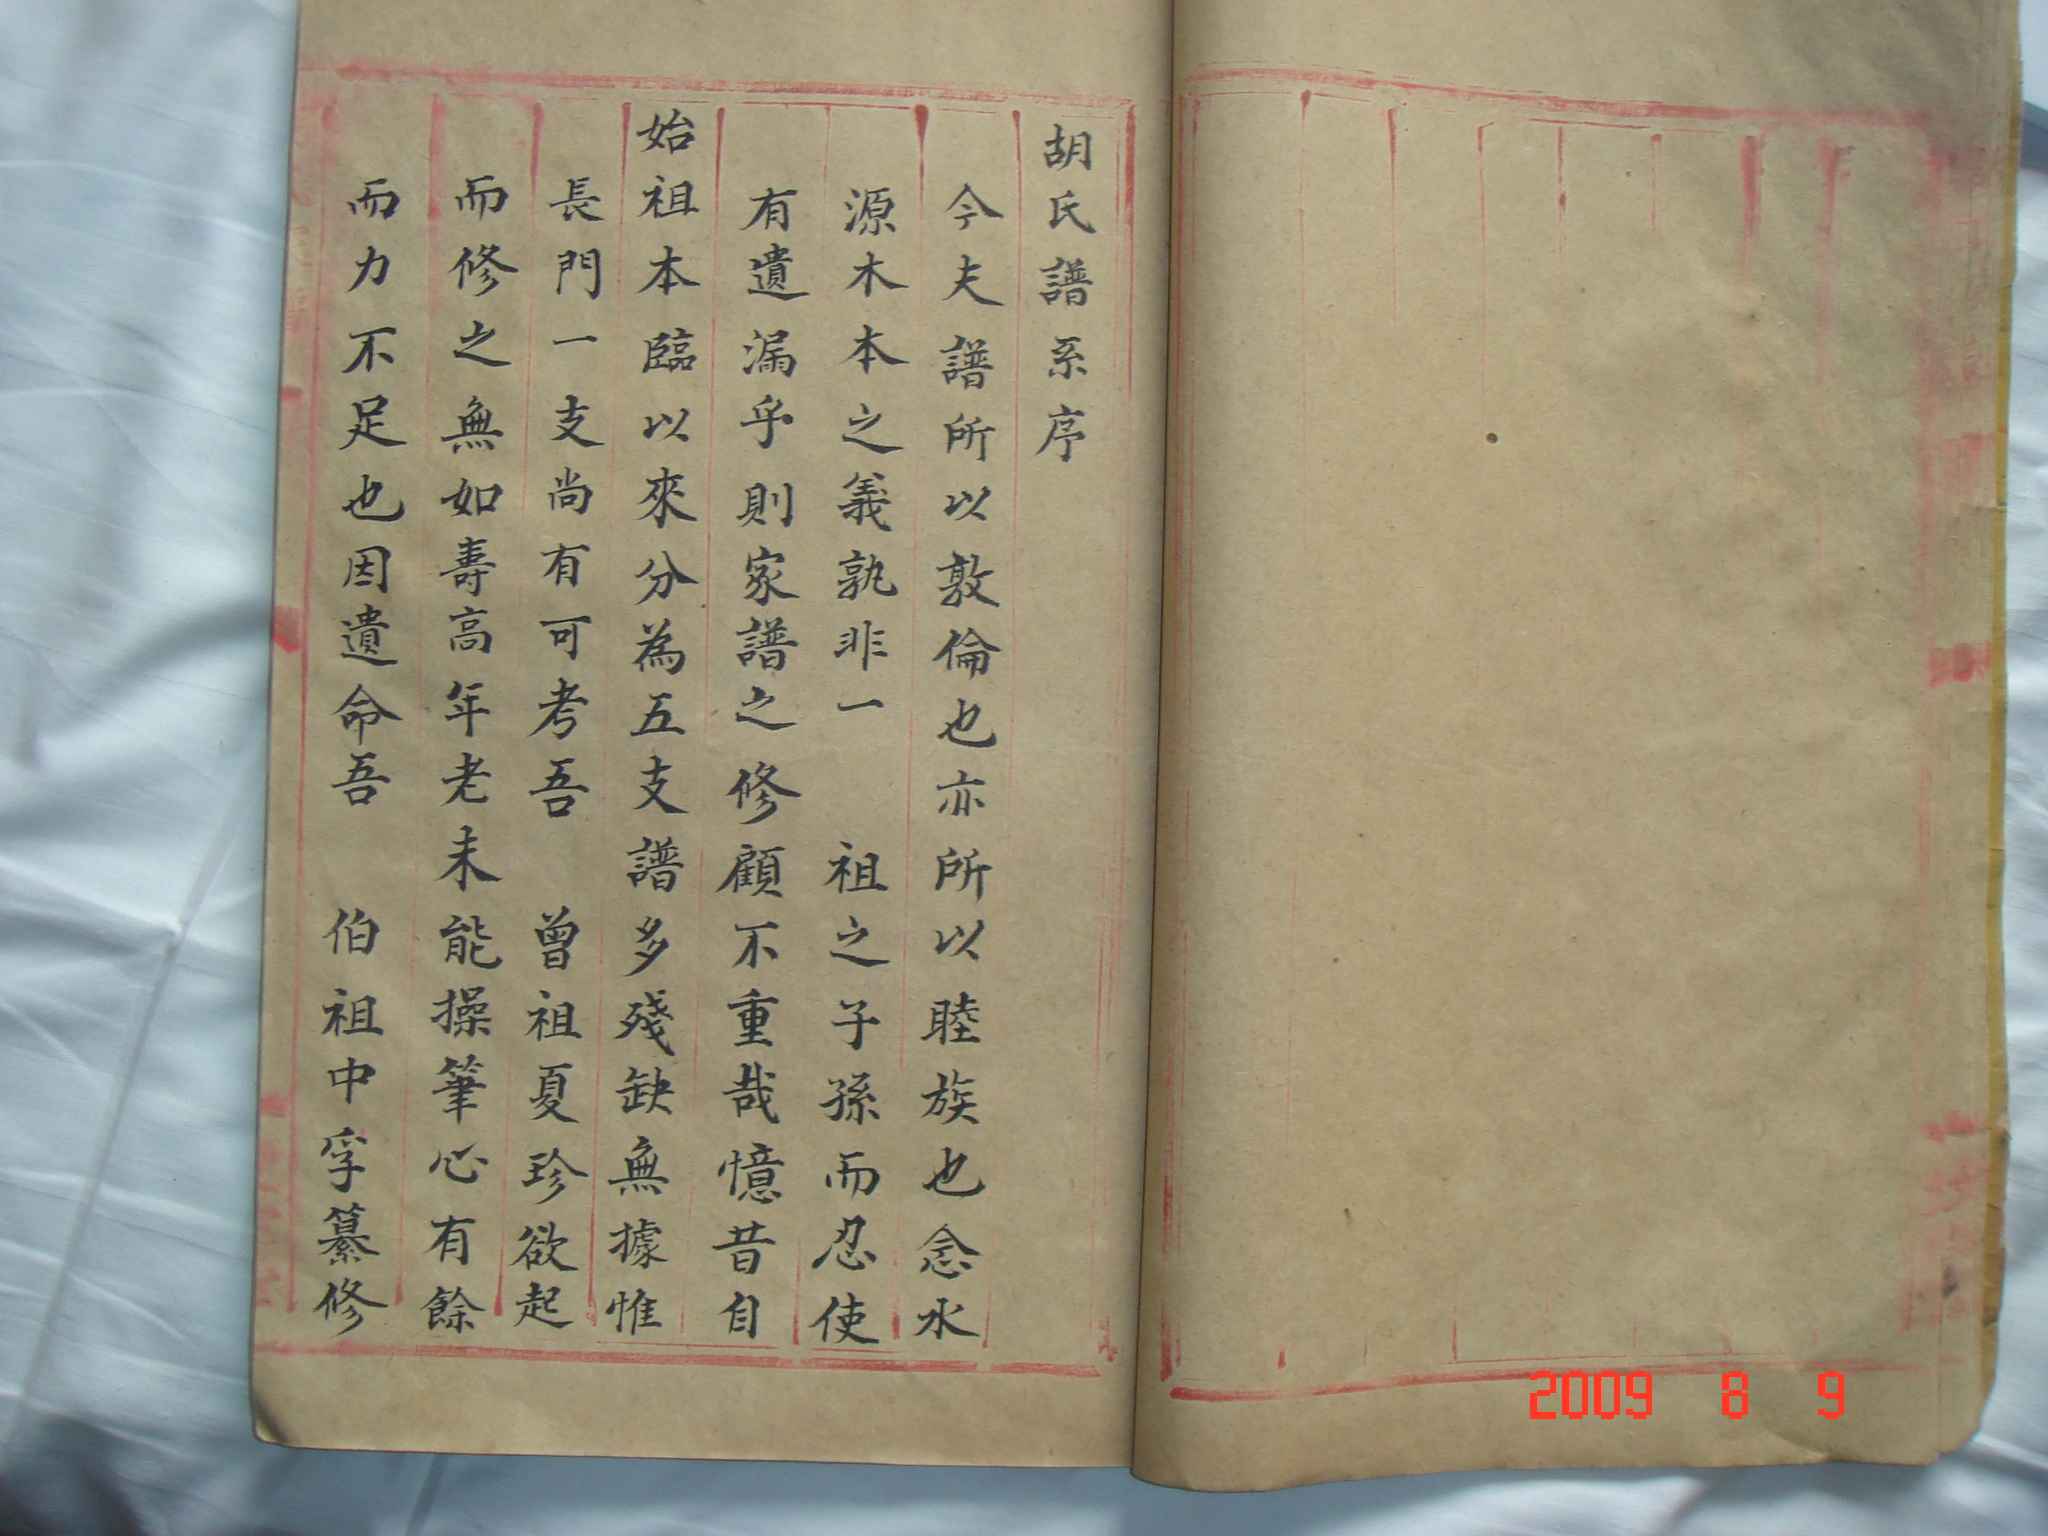 胡氏譜系序
今夫譜所以敦倫也亦所以睦族也念水
源木本之義孰非一 祖之子孫而忍使
有遺漏乎則家譜之修顧不重哉憶昔自
始祖本臨以來分為五支譜多殘缺無據惟
長門一支尚有可考吾 曾祖夏珍欲起
而修之無如壽高年老未能操筆心有餘
而力不足也因遺命吾 伯祖中孚纂修
2009 8 9